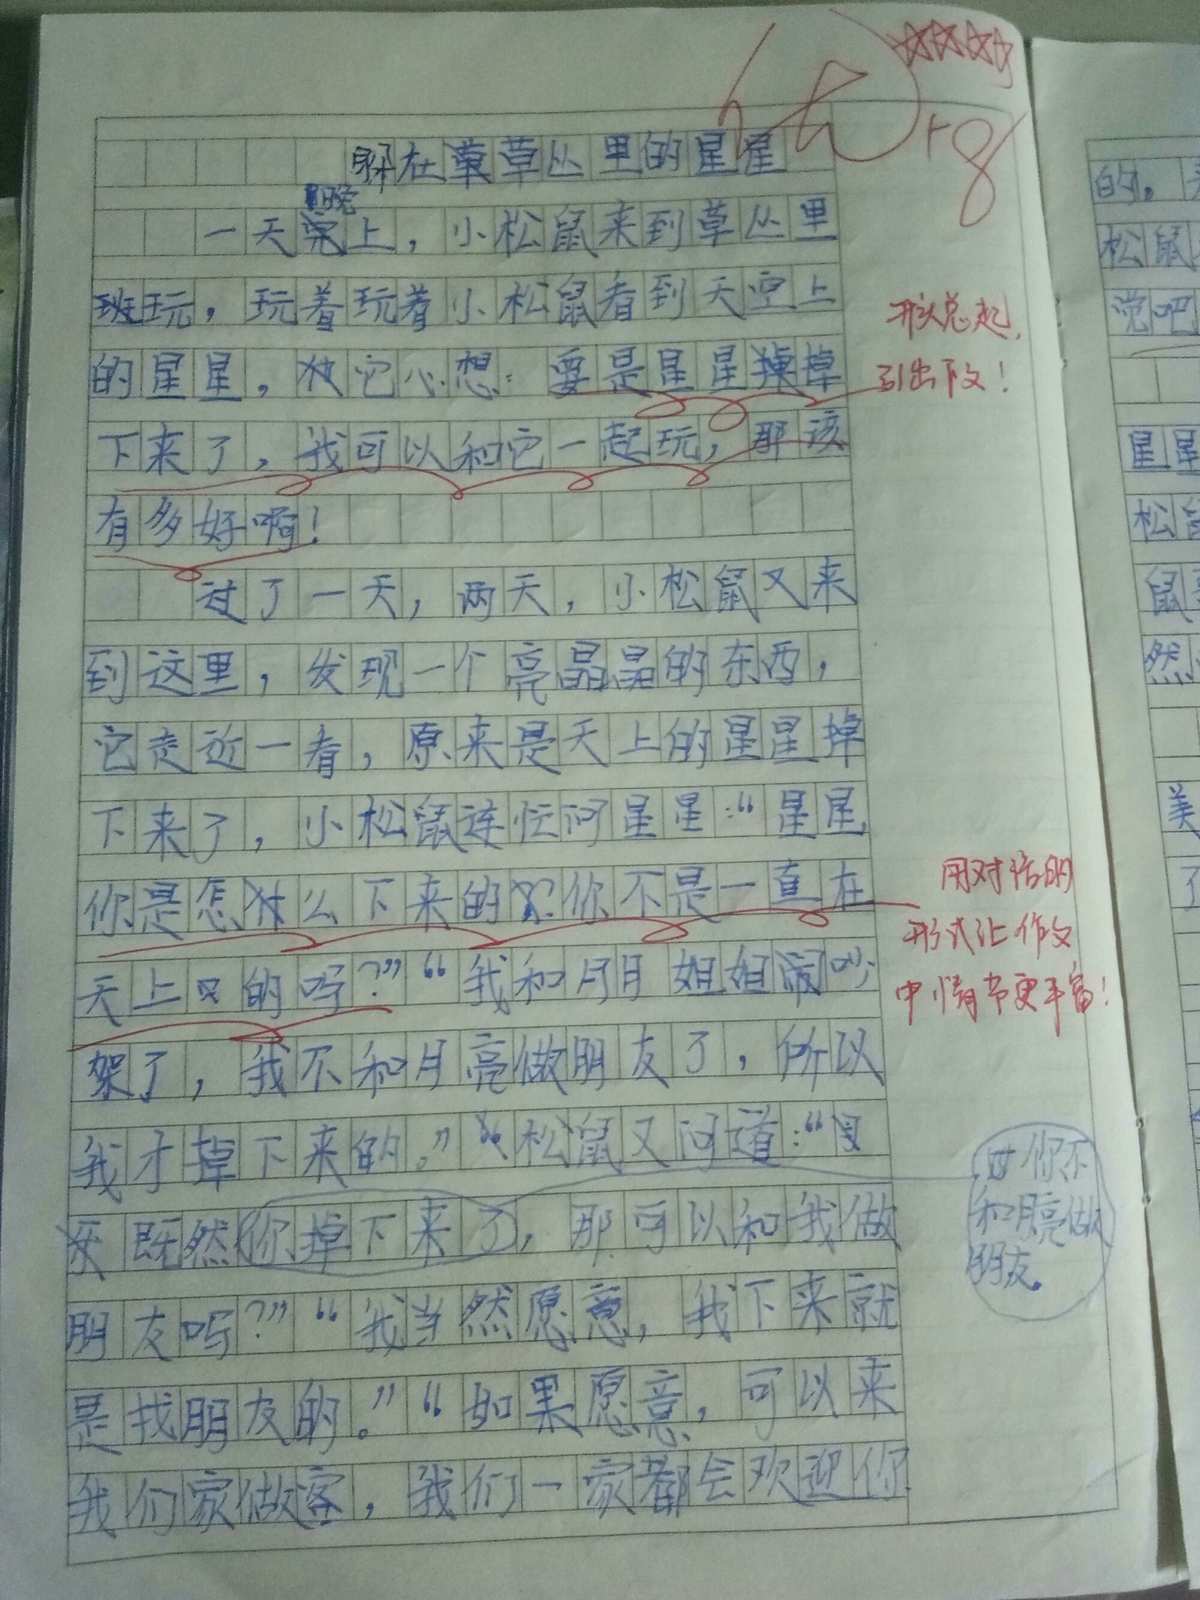 躲在草丛里的星星
一天晚上，小松鼠来到草丛里
玩，玩着玩着小松鼠看到天空上
的星星，它心想：要是星星掉
下来了，我可以和它一起玩，那该
有多好啊！
过了一天，两天，小松鼠又来
到这里，发现一个亮晶晶的东西，
它走近一看，原来是天上的星星掉
下来了，小松鼠连忙问星星：“星星
你是怎么下来的？你不是一直在
天上的吗？”“我和月月姐姐闹吵
架了，我不和月亮做朋友了，所以
我才掉下来的。”“松鼠又问道：“
既然你掉下来了，那可以和我做
朋友吗？”“我当然愿意，我下来就
是找朋友的。”“如果愿意，可以来
我们家做客，我们一家都会欢迎你
开头总起，
引出下文！
用对话的
形式让作文
中情节更丰富！
你不
和月亮做
朋友。
+8
的，
松鼠
觉吧
星星
松鼠
鼠
然
美
了